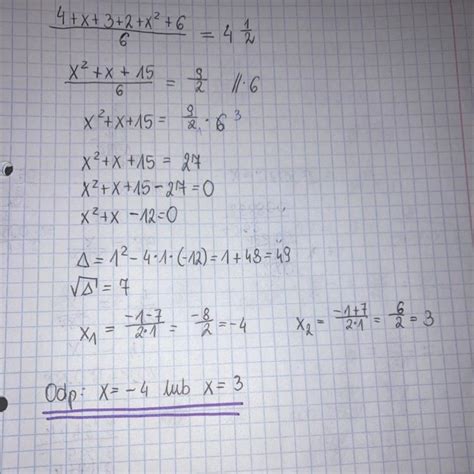 (4+x+3+2+x²+6)/6 = 4 1/2
(x²+x+15)/6 = 9/2 //·6
x²+x+15 = 9/2₁ · 6 ³
x²+x+15 = 27
x²+x+15-27=0
x²+x -12=0
Δ = 1² - 4·1·(-12) = 1 + 48 = 49
√Δ = 7
x₁ = (-1-7)/(2·1) = -8/2 = -4 x₂ = (-1+7)/(2·1) = 6/2 = 3
Odp: x = -4 lub x = 3